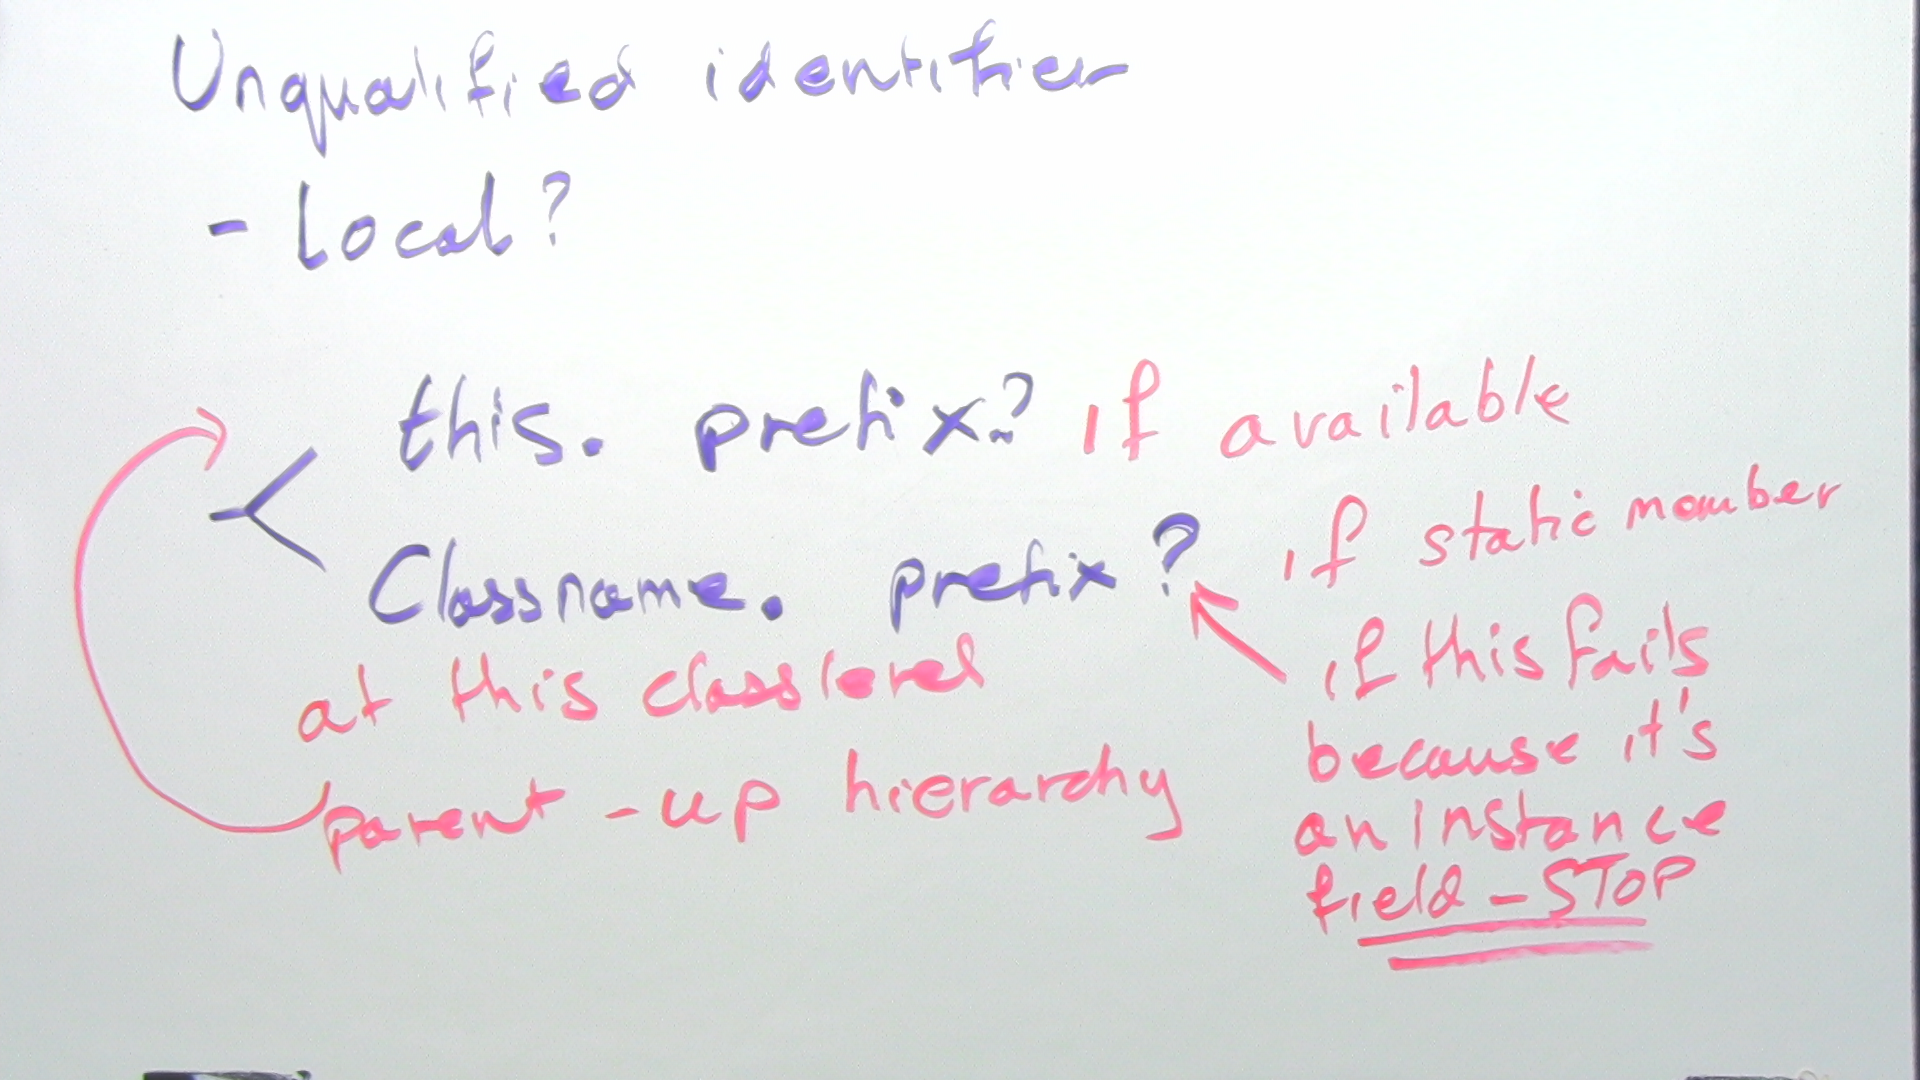 Unqualified identifier
- Local?
this. prefix? if available
Classname. prefix? if static member
at this class level
parent - up hierarchy
if this fails
because it's
an instance
field - STOP